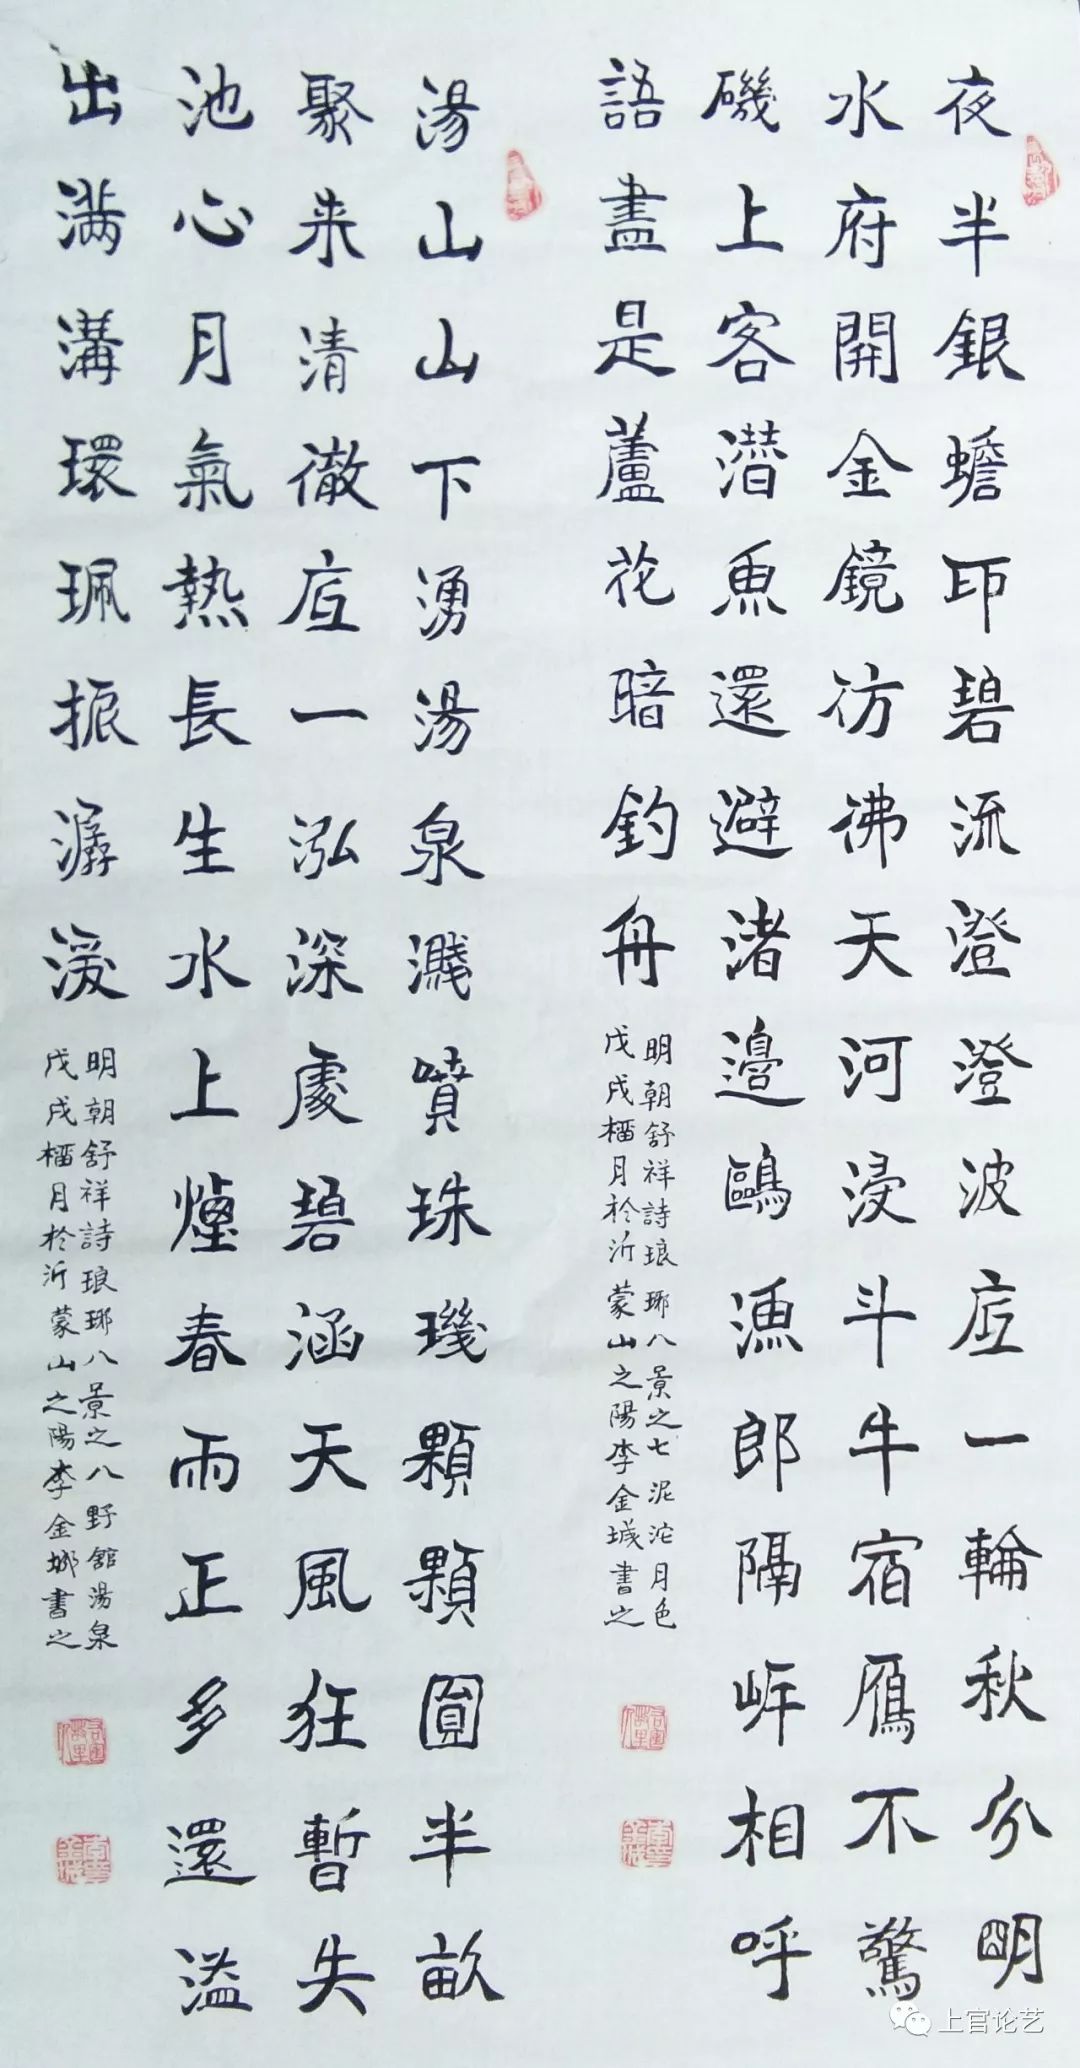 夜半銀蟾印碧流澄澄波底一輪秋分明
水府開金鏡彷彿天河浸斗牛宿雁不驚
磯上客潛魚還避渚邊鷗漁郎隔岸相呼
語盡是蘆花暗釣舟
明朝舒祥詩琅琊八景之七泥沱月色
戊戌榴月於沂蒙山之陽李金城書之
湯山山下湧湯泉濺噴珠璣顆顆圓半畝
聚来清徹底一泓深處碧涵天風狂暫失
池心月氣熱長生水上煙春雨正多還溢
出滿溝環珮振潺湲
明朝舒祥詩琅琊八景之八野館湯泉
戊戌榴月於沂蒙山之陽李金城書之
上官论艺